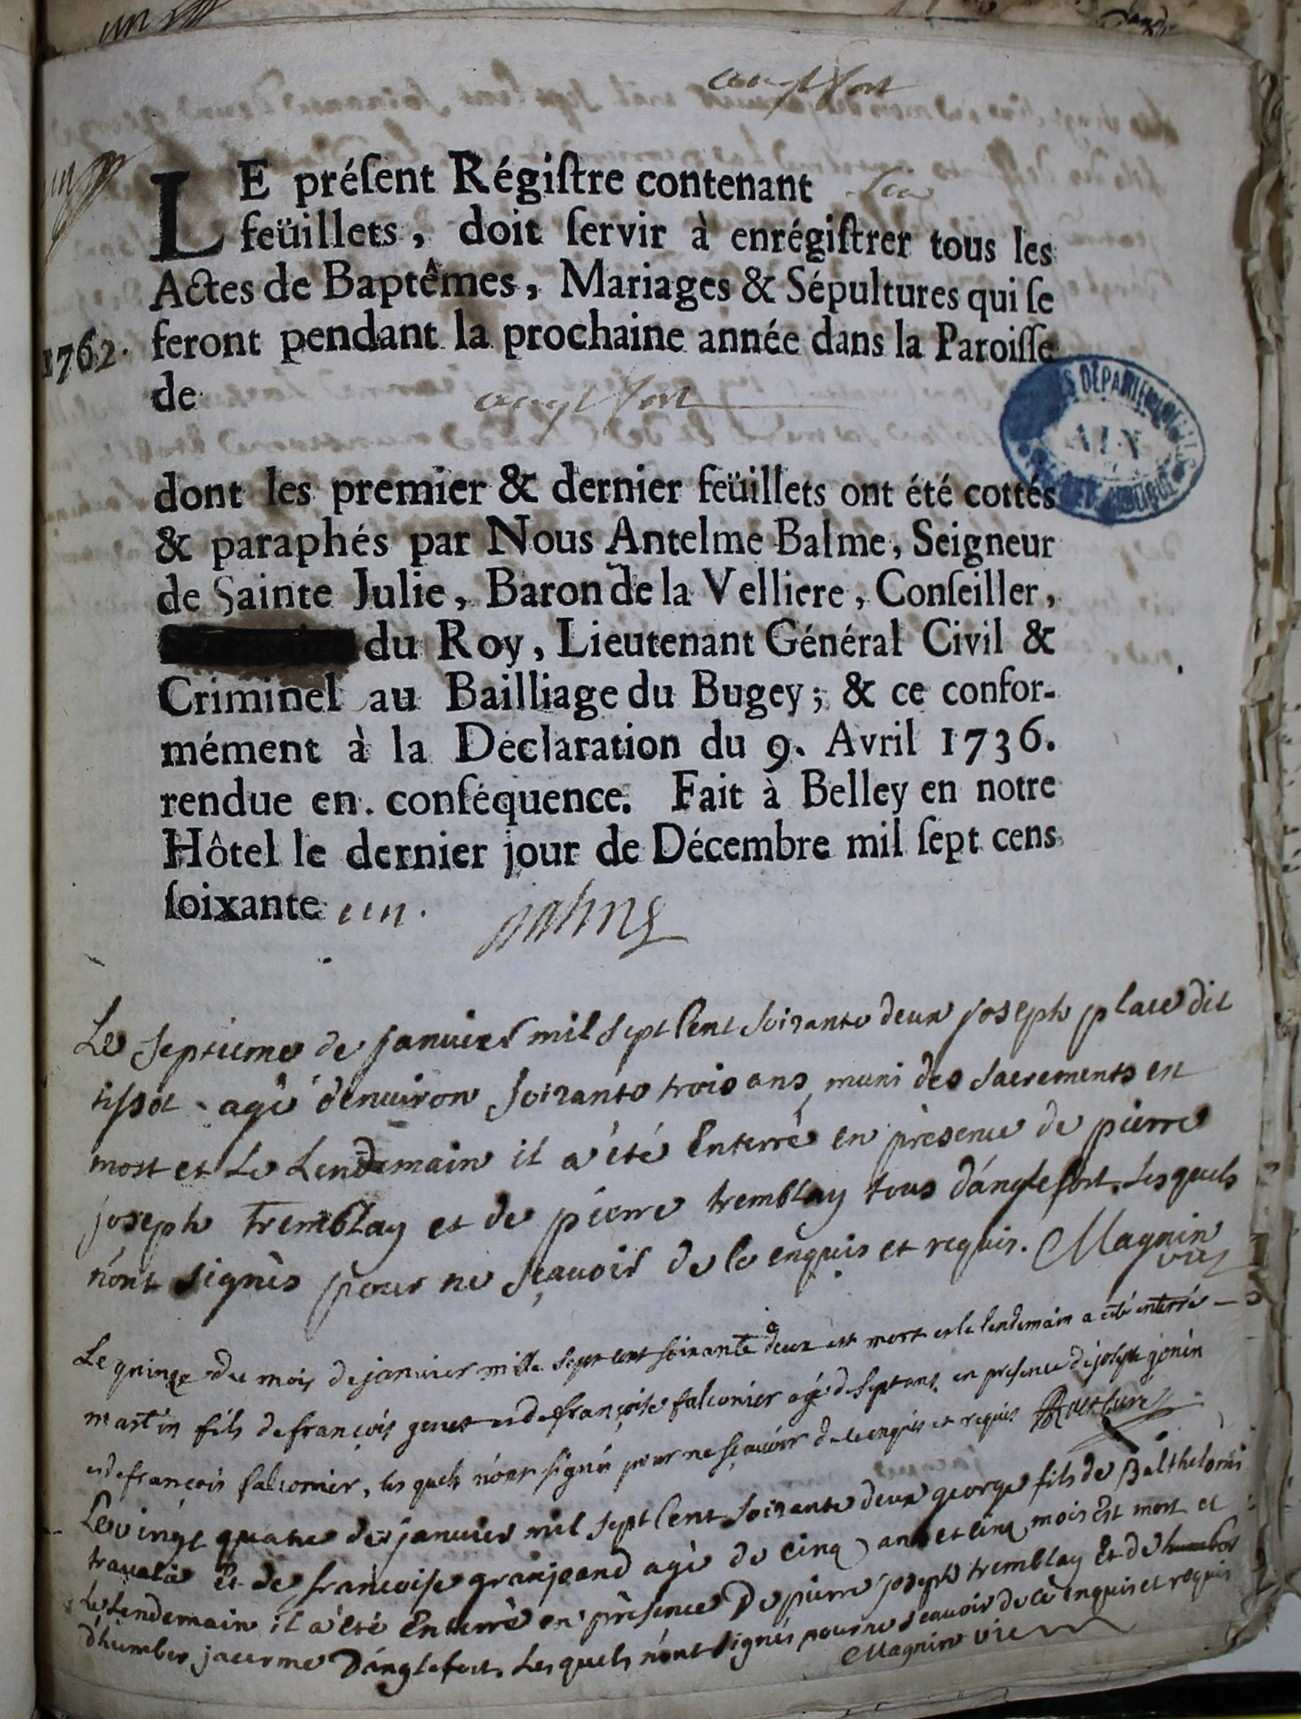 anglefort
LE préſent Régiſtre contenant
feüillets, doit ſervir à enrégiſtrer tous les
Actes de Baptêmes, Mariages & Sépultures qui ſe
1762. feront pendant la prochaine année dans la Paroiſſe
de anglefort
dont les premier & dernier feüillets ont été cottés
& paraphés par Nous Antelme Balme, Seigneur
de Sainte Julie, Baron de la Velliere, Conſeiller,
du Roy, Lieutenant Général Civil &
Criminel au Bailliage du Bugey; & ce confor-
mément à la Declaration du 9. Avril 1736.
rendue en conſéquence. Fait à Belley en notre
Hôtel le dernier jour de Décembre mil ſept cens
ſoixante un.
DÉPARTEMENTALES
AIN
Le septieme de janvier mil sept Cent Soixante deux joseph place dit
tissot agé d'environ Soixante trois ans muni des Sacrements est
mort et Le Lendemain il a été Enterré en présence de pierre
joseph Tremblay et de pierre tremblay tous d'anglefort. Lesquels
n'ont signés pour ne sçavoir de ce enquis et requis. Magnin
vic
Le quinze du mois de janvier mille sept cent soixante deux est mort et le lendemain a été enterré
martin fils de françois genet et de françoise falconier agé de sept ans en presence de joseph genin
et de francois falconier, les quels n'ont signé pour ne sçavoir de ce enquis et requis
Le vingt quatre de janvier mil sept Cent Soixante deux george fils de Balthelomi
travalia Et de françoise granjeand agé de cinq ans et cinq mois Est mort et
Le Lendemain il a été Enterré en présence De pierre joseph tremblay Et de
d'humber jacerme D'anglefort. Lesquels n'ont signés pour ne sçavoir de ce enquis et requis
Magnin vic